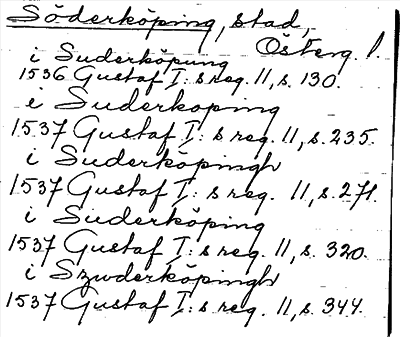 Söderköping, stad,
Österg. l.
i Suderköpung
1536 Gustaf I: s reg. 11, s. 130.
i Suderkoping
1537 Gustaf I: s reg. 11, s. 235.
i Suderköpingh
1537 Gustaf I: s reg. 11, s. 271.
i Suderköping
1537 Gustaf I: s reg. 11, s. 320.
i Szwderköpingh
1537 Gustaf I: s reg. 11, s. 344.